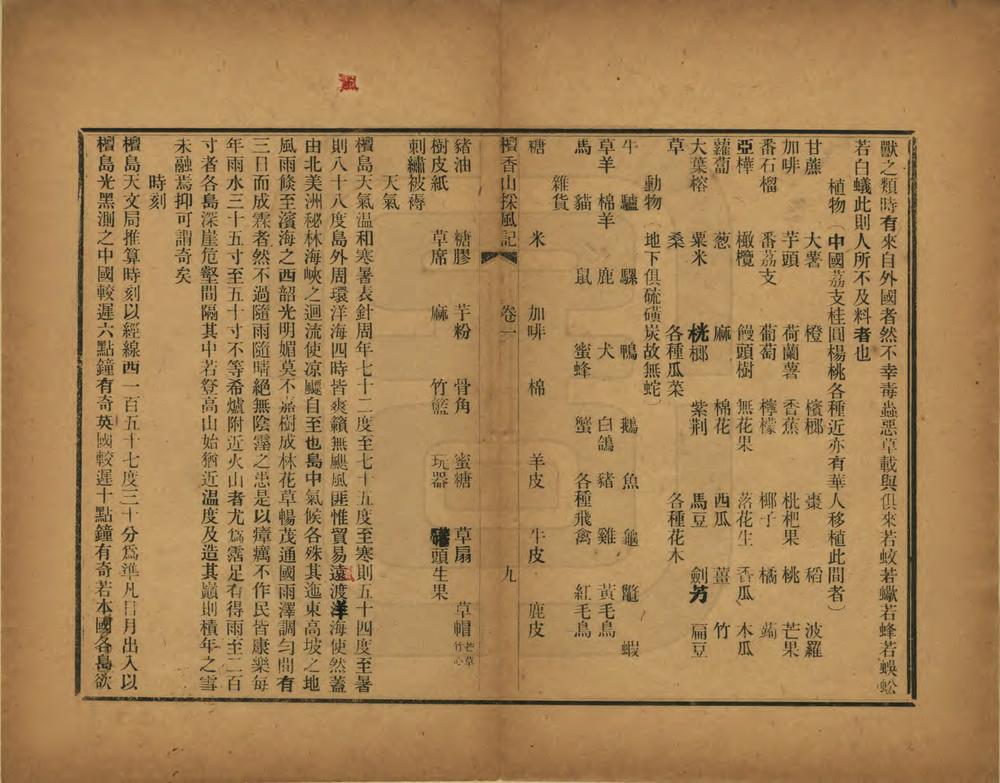 獸之類時有來自外國者然不幸毒蟲惡草載與俱來若蚊若蠍若蜂若蜈蚣
若白蟻此則人所不及料者也
植物（中國荔支桂圓楊桃各種近亦有華人移植此間者）
甘蔗　大薯　橙　檳榔　棗　稻　波羅
加啡　芋頭　荷蘭薯　香蕉　枇杷果　桃　芒果
番石榴　番荔支　葡萄　檸檬　椰子　橘　蒟
亞樺　橄欖　饅頭樹　無花果　落花生　香瓜　木瓜
蘿蔔　葱　麻　棉花　西瓜　薑　竹
大葉榕　粟米　桄榔　紫荆　馬豆　劍芀　扁豆
草　桑　各種瓜菜　各種花木
動物　地下俱硫磺炭故無蛇）
牛　驢　騾　鴨　鵝　魚　龜　鼈　蝦
草羊　棉羊　鹿　犬　白鴿　豬　雞　黃毛鳥
馬　貓　鼠　蜜蜂　蟹　各種飛禽　紅毛鳥
雜貨
糖　米　加啡　棉　羊皮　牛皮　鹿皮
檀香山採風記　卷一　九
豬油　糖膠　芋粉　骨角　蜜糖　草扇　草帽芒草竹心
樹皮紙　草席　麻　竹籃　玩器　頭生果
刺繡被褥
天氣
檀島天氣温和寒暑表針周年七十二度至七十五度至寒則五十四度至暑
則八十八度島外周環洋海四時皆爽籟無颶風匪惟貿易遠渡洋海使然蓋
由北美洲秘林海峽之迴流使凉飈自至也島中氣候各殊其迤東高坡之地
風雨倏至濱海之西韶光明媚莫不嘉樹成林花草暢茂通國雨澤調勻間有
三日而成霖者然不過隨雨隨晴絶無陰霪之患是以瘴癘不作民皆康樂每
年雨水三十五寸至五十寸不等希爐附近火山者尤爲霑足有得雨至二百
寸者各島深崖危壑間隔其中若登高山始猶近温度及造其巔則積年之雪
未融焉抑可謂奇矣
時刻
檀島天文局推算時刻以經線西一百五十七度三十分爲準凡日月出入以
檀島光黑測之中國較遲六點鐘有奇英國較遲十點鐘有奇若本國各島欲